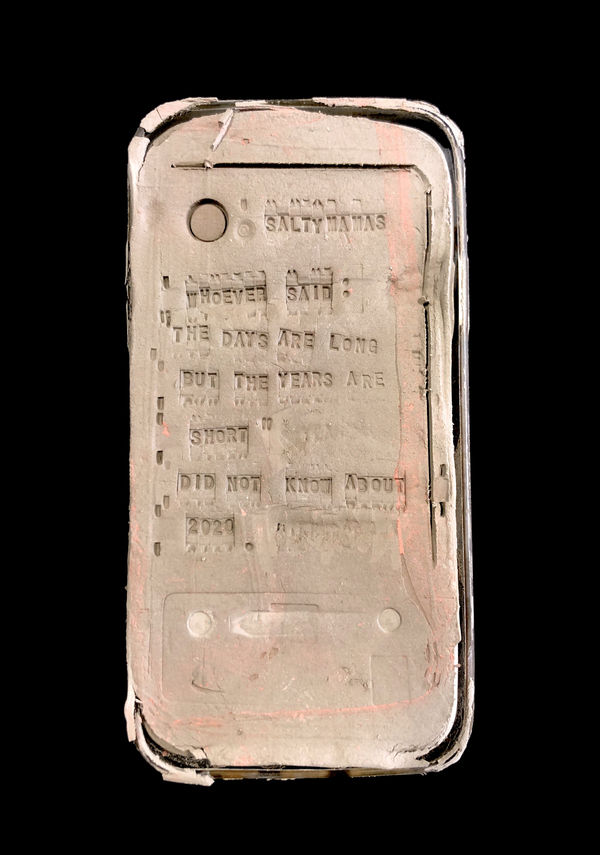 SALTYMAMAS
WHOEVER SAID:
"THE DAYS ARE LONG
BUT THE YEARS ARE
SHORT"
DID NOT KNOW ABOUT
2020.